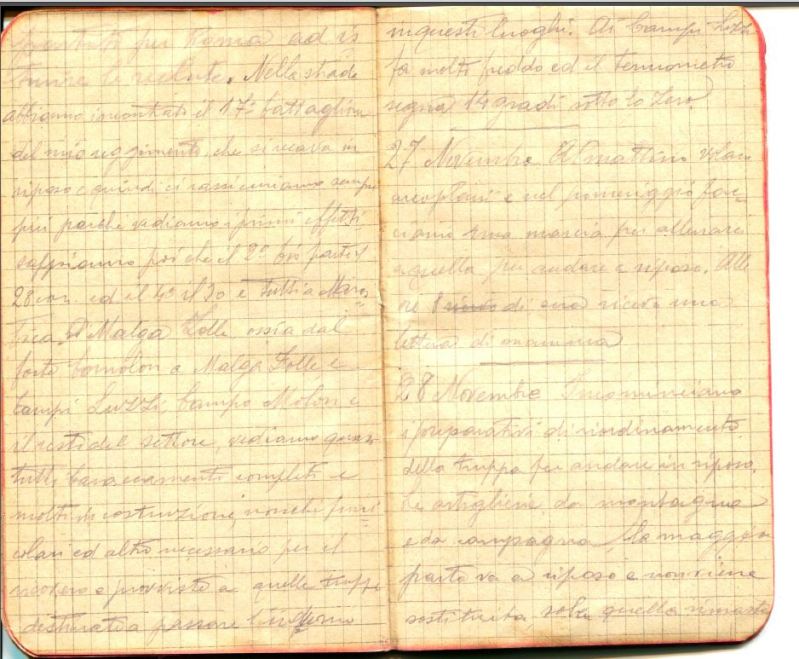 tutti per Roma ad is
truire le reclute. Nella strada
abbiamo incontrato il 17° battaglione
del mio reggimento, che si recava in
riposo e quindi ci rassicuriamo sempre
più perché vediamo i primi effetti
sappiamo poi che il 2° partì il
28 cor. ed il 4° il 30 e tutti a
Malga Zolle ossia dal
forte Cornolon a Malga Zolle e
Campi Luzzi. Campo Molon e
il resto del settore, vediamo quasi
tutti baraccamenti completi e
molti in costruzione, nonché funi
colari ed altro necessario per il
ricovero e provviste a quelle truppe
destinate a passare l'inverno
in questi luoghi. Ai Campi Luzzi
fa molto freddo ed il termometro
segna 14 gradi sotto lo zero.
27 Novembre Al mattino
aeroplani e nel pomeriggio fac-
ciamo una marcia per allenarci
a quella per andare a riposo. Alle
re 8 di sera ricevo una
lettera di mamma
28 Novembre Incominciano
i preparativi di riordinamento
della truppa per andare in riposo.
Le artiglierie da montagna
e da campagna, la maggior
parte va a riposo e non viene
sostituita, solo quella rimasta